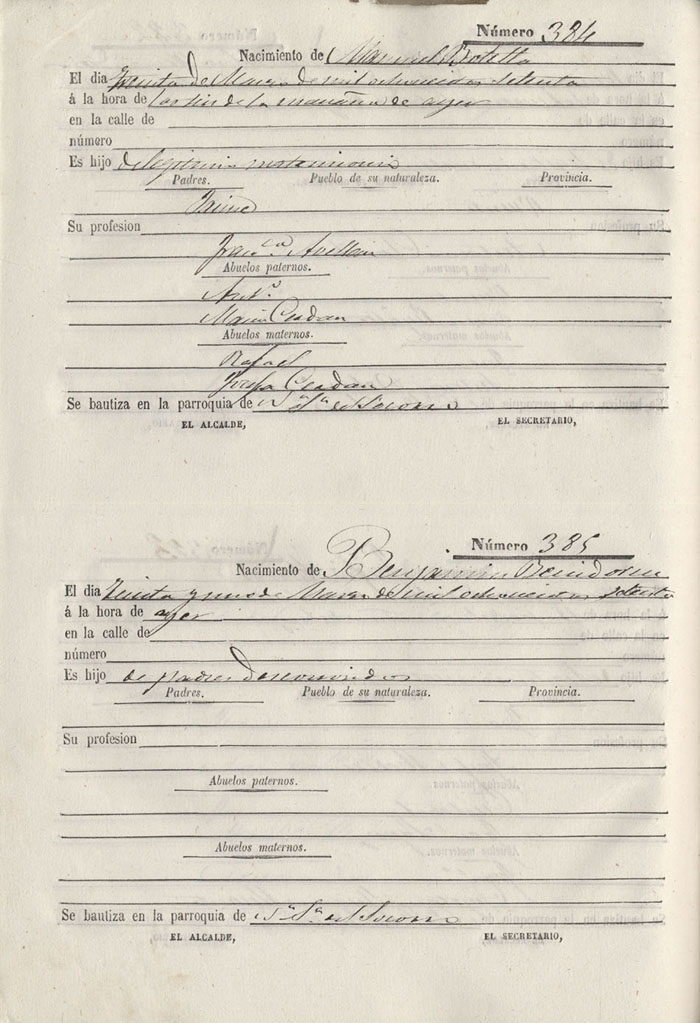 Número 384
Nacimiento de Manuel Botella
El dia treinta de Marzo de mil ochocientos setenta
á la hora de las seis de la mañana de ayer
en la calle de
número
Es hijo de legitimo matrimonio
Padres. Pueblo de su naturaleza. Provincia.
Jaime
Su profesion
Fran.ca
Abuelos paternos.
Ant.o
Maria Cerdan
Abuelos maternos.
Rafael
Josefa Cerdan
Se bautiza en la parroquia de N.a S.a del Socorro
EL ALCALDE, EL SECRETARIO,
Número 385
Nacimiento de Benjamin Benidorm
El dia treinta y uno de Marzo de mil ochocientos setenta
á la hora de ayer
en la calle de
número
Es hijo de padres desconocidos
Padres. Pueblo de su naturaleza. Provincia.
Su profesion
Abuelos paternos.
Abuelos maternos.
Se bautiza en la parroquia de N.a S.a del Socorro
EL ALCALDE, EL SECRETARIO,